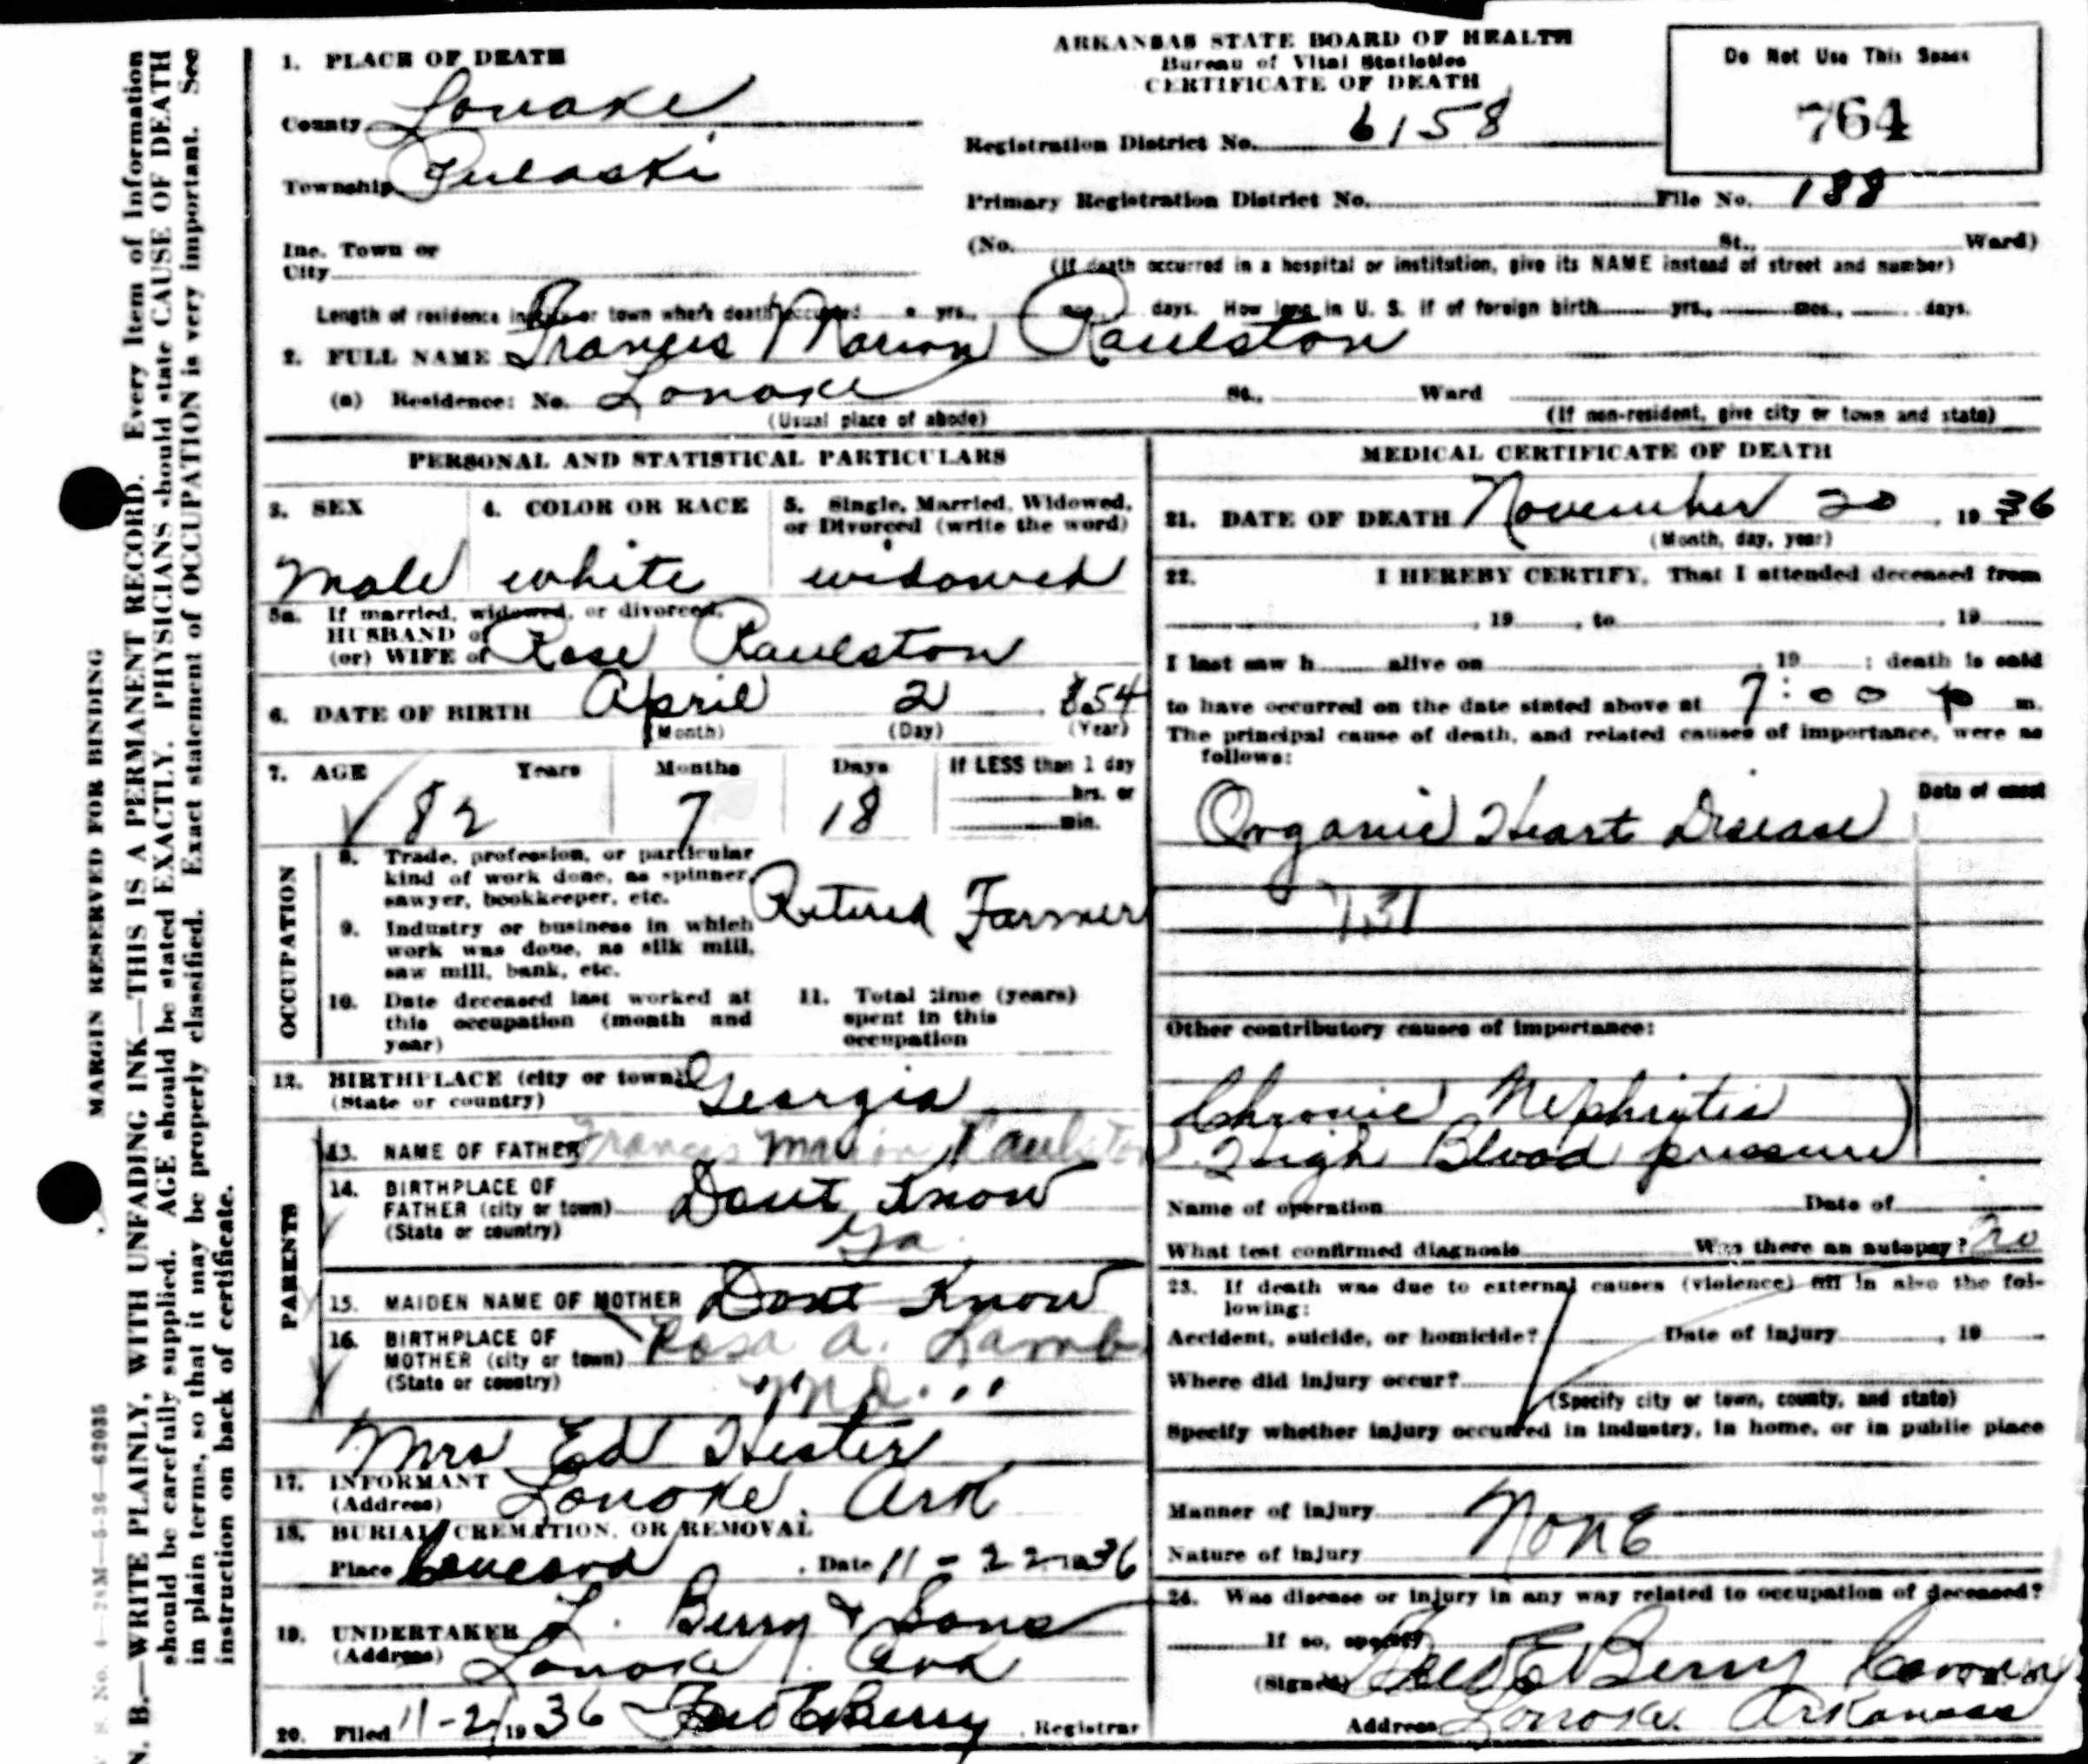 ARKANSAS STATE BOARD OF HEALTH
Bureau of Vital Statistics
CERTIFICATE OF DEATH
Do Not Use This Space
764
1. PLACE OF DEATH
County Lonoke
Township Pulaski
Inc. Town or
City
Registration District No. 6158
Primary Registration District No. File No. 188
(No. St., Ward)
(If death occurred in a hospital or institution, give its NAME instead of street and number)
Length of residence in city or town where death occurred yrs., mos., days. How long in U. S. if of foreign birth yrs., mos., days.
2. FULL NAME Francis Marion Raulston
(a) Residence: No. Lonoke St., Ward
(Usual place of abode) (If non-resident, give city or town and state)
PERSONAL AND STATISTICAL PARTICULARS
3. SEX
Male
4. COLOR OR RACE
white
5. Single, Married, Widowed,
or Divorced (write the word)
widowed
5a. If married, widowed, or divorced,
HUSBAND of
(or) WIFE of Rose Raulston
6. DATE OF BIRTH April 2 1854
(Month) (Day) (Year)
7. AGE Years Months Days If LESS than 1 day
hrs. or
min.
82 7 18
OCCUPATION
8. Trade, profession, or particular
kind of work done, as spinner,
sawyer, bookkeeper, etc.
Retired Farmer
9. Industry or business in which
work was done, as silk mill,
saw mill, bank, etc.
10. Date deceased last worked at
this occupation (month and
year)
11. Total time (years)
spent in this
occupation
12. BIRTHPLACE (city or town) Georgia
(State or country)
PARENTS
13. NAME OF FATHER Francis Marion Raulston
14. BIRTHPLACE OF
FATHER (city or town) Dont Know
(State or country) Ga
15. MAIDEN NAME OF MOTHER Dont Know
16. BIRTHPLACE OF
MOTHER (city or town) Rosa A. Lamb
(State or country) " Md. "
Mrs Ed Hester
17. INFORMANT
(Address) Lonoke, Ark
18. BURIAL, CREMATION, OR REMOVAL
Place Concord , Date 11-22 1936
19. UNDERTAKER L. Berry & Sons
(Address) Lonoke, Ark
20. Filed 11-21 1936 Fred E Berry , Registrar
MEDICAL CERTIFICATE OF DEATH
21. DATE OF DEATH November 20, 1936
(Month, day, year)
22. I HEREBY CERTIFY, That I attended deceased from
, 19 , to , 19
I last saw h alive on , 19 ; death is said
to have occurred on the date stated above at 7:00 p m.
The principal cause of death, and related causes of importance, were as
follows:
Date of onset
Organic Heart Disease
131
Other contributory causes of importance:
Chronic Nephritis
High Blood pressure
Name of operation Date of
What test confirmed diagnosis Was there an autopsy? no
23. If death was due to external causes (violence) fill in also the fol-
lowing:
Accident, suicide, or homicide? Date of injury , 19
Where did injury occur?
(Specify city or town, county, and state)
Specify whether injury occurred in industry, in home, or in public place
Manner of injury None
Nature of injury
24. Was disease or injury in any way related to occupation of deceased?
If so, specify
(Signed) Fred E Berry Coroner
Address Lonoke, Arkansas
MARGIN RESERVED FOR BINDING
N. B.—WRITE PLAINLY, WITH UNFADING INK—THIS IS A PERMANENT RECORD. Every Item of Information
should be carefully supplied. AGE should be stated EXACTLY. PHYSICIANS should state CAUSE OF DEATH
in plain terms, so that it may be properly classified. Exact statement of OCCUPATION is very important. See
instruction on back of certificate.